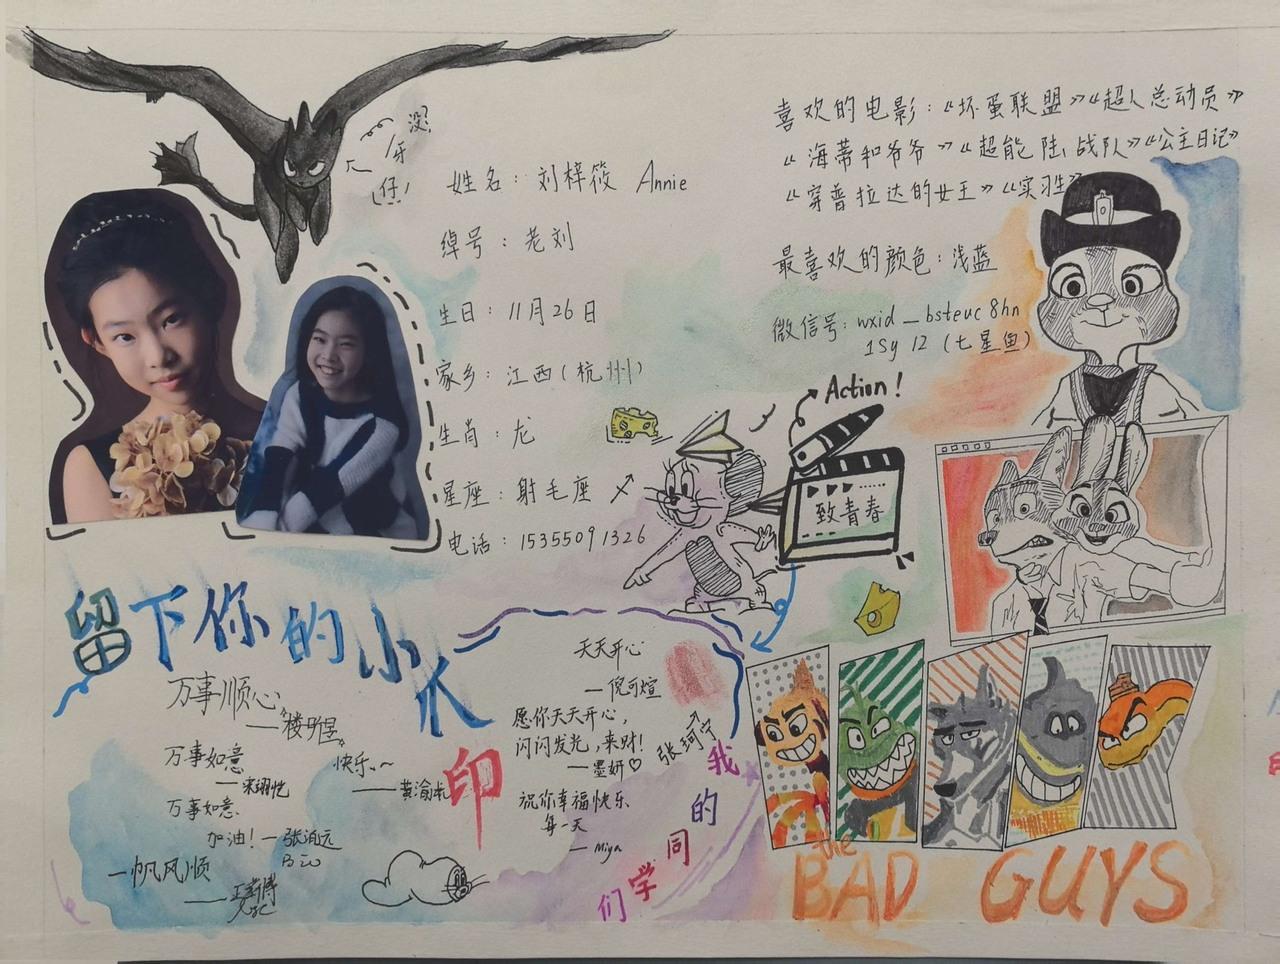 没
牙
仔!
姓名：刘梓筱 Annie
绰号：老刘
生日：11月26日
家乡：江西（杭州）
生肖：龙
星座：射毛座
电话：15355091326
喜欢的电影：《坏蛋联盟》《超人总动员》
《海蒂和爷爷》《超能陆战队》《公主日记》
《穿普拉达的女王》《实习生》
最喜欢的颜色：浅蓝
微信号：wxid_bsteuc8hn
1Sy12（七星鱼）
Action!
致青春
留下你的小爪
印
万事顺心
万事如意
快乐、~
万事如意
加油！
一帆风顺
天天开心
—倪可煊
愿你天天开心，
闪闪发光，来财！
—墨妍♡
祝你幸福快乐
每一天
—Miya
张珂宁
我的同学们
the
BAD GUYS